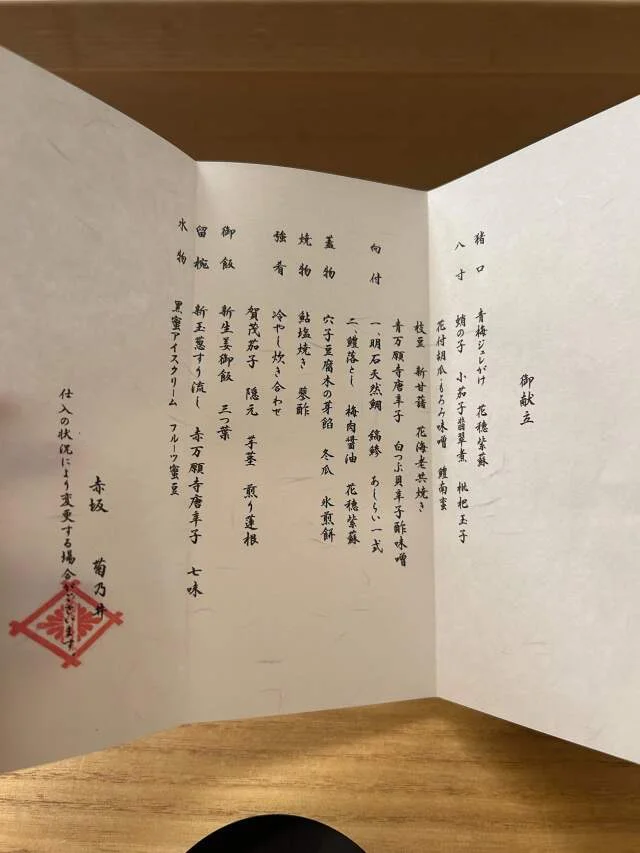 御献立
猪口　青梅ジュレがけ　花穂紫蘇
八寸　蛸の子　小茄子翡翠煮　枇杷玉子
花付胡瓜・もろみ味噌　鱧南蛮
枝豆　新甘藷　花海老共焼き
青万願寺唐辛子　白つぶ貝辛子酢味噌
向付　一、明石天然鯛　縞鯵　あしらい一式
二、鱧落とし　梅肉醤油　花穂紫蘇
蓋物　穴子豆腐木の芽餡　冬瓜　氷煎餅
焼物　鮎塩焼き　蓼酢
強肴　冷やし炊き合わせ
賀茂茄子　隠元　芋茎　煎り蓮根
御飯　新生姜御飯　三つ葉
留椀　新玉葱すり流し　赤万願寺唐辛子　七味
水物　黒蜜アイスクリーム　フルーツ蜜豆
赤坂　菊乃井
仕入の状況により変更する場合がございます。